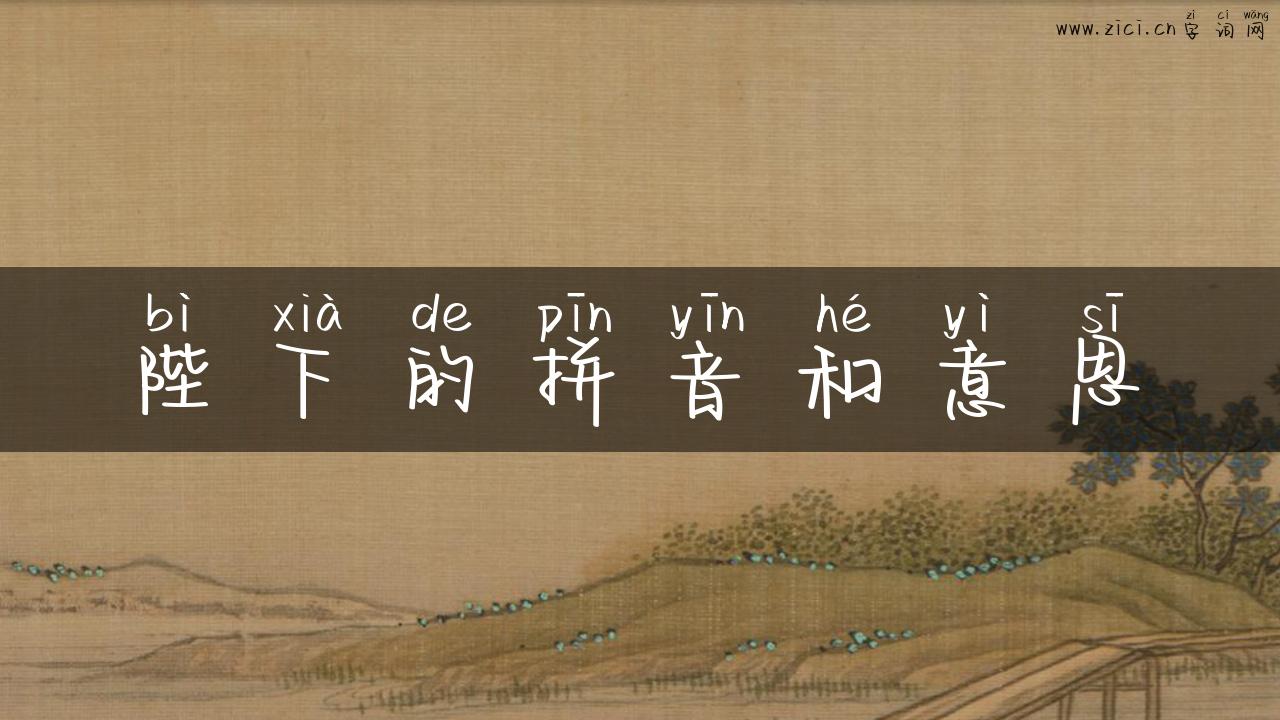 zì cí wǎng
www.zici.cn字词网
bì xià de pīn yīn hé yì sī
陛下的拼音和意思